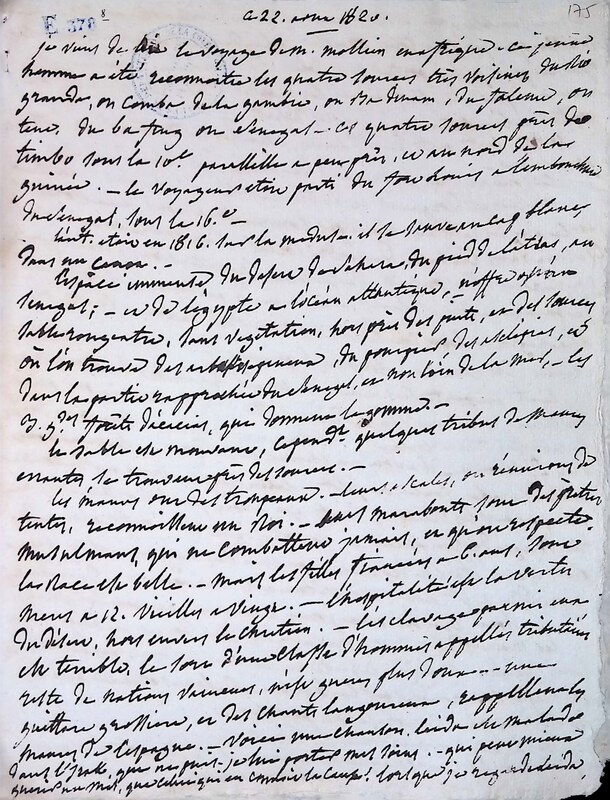 E 378 8
ce 22. aout 1820.
175
je viens de lire le voyage de m. mollien en afrique. ce jeune
homme a été reconnoitre les quatre sources très voisines du rio
grande, ou comba de la gambie, ou ba diman, du faleme, ou
tene, du ba fing ou senegal. ces quatre sources près de
timbo sous la 10e. parallèle a peu près, et au nord de la
guinée. — le voyageur etoit parti du fort louis a l'embouchure
du senegal, sous la 16.e
il etoit en 1816. sur la meduse. il se sauve au cap blanc
dans un canot. —
l'espace immense du desert de sahara, du pied de l'atlas, au
senegal; — et de l'égypte a l'océan atlantique, n'offre qu'un
sable rougeatre, sans vegetation, hors près des puits, et des sources
où l'on trouve des du pourpier des asclepias, et
dans la partie rapprochée du senegal, et non loin de la mer, — les
3. gdes. forêts d'acacias, qui donnent la gomme. —
le sable est mouvant, cependt. quelques tribus de maures
errantes se trouvent près des sources. —
les maures ont des troupeaux. — leurs escales, ou réunions de
tentes, reconnoissent un Roi. — leurs marabouts sont des prêtres
musulmans, qui ne combattent jamais, et qu'on respecte.
la race est belle. — mais les filles fiancées a 6. ans, sont
meres a 12. vieilles a vingt. — l'hospitalité est la vertu
du désert, hors envers le chretien. — l'esclavage parmi eux
est terrible, le sort d'une classe d'hommes appellés tributaires
reste de nations vaincues, n'est gueres plus doux — une
guittare grossiere, et des chants langoureux, rappellent les
maures de l'espagne. — voici une chanson, leida est malade
dans l'Irak, que ne puis-je lui porter mes soins. — qui peut mieux
guerir un mal, que celui qui en connoit la cause! lorsque je regarde leida,